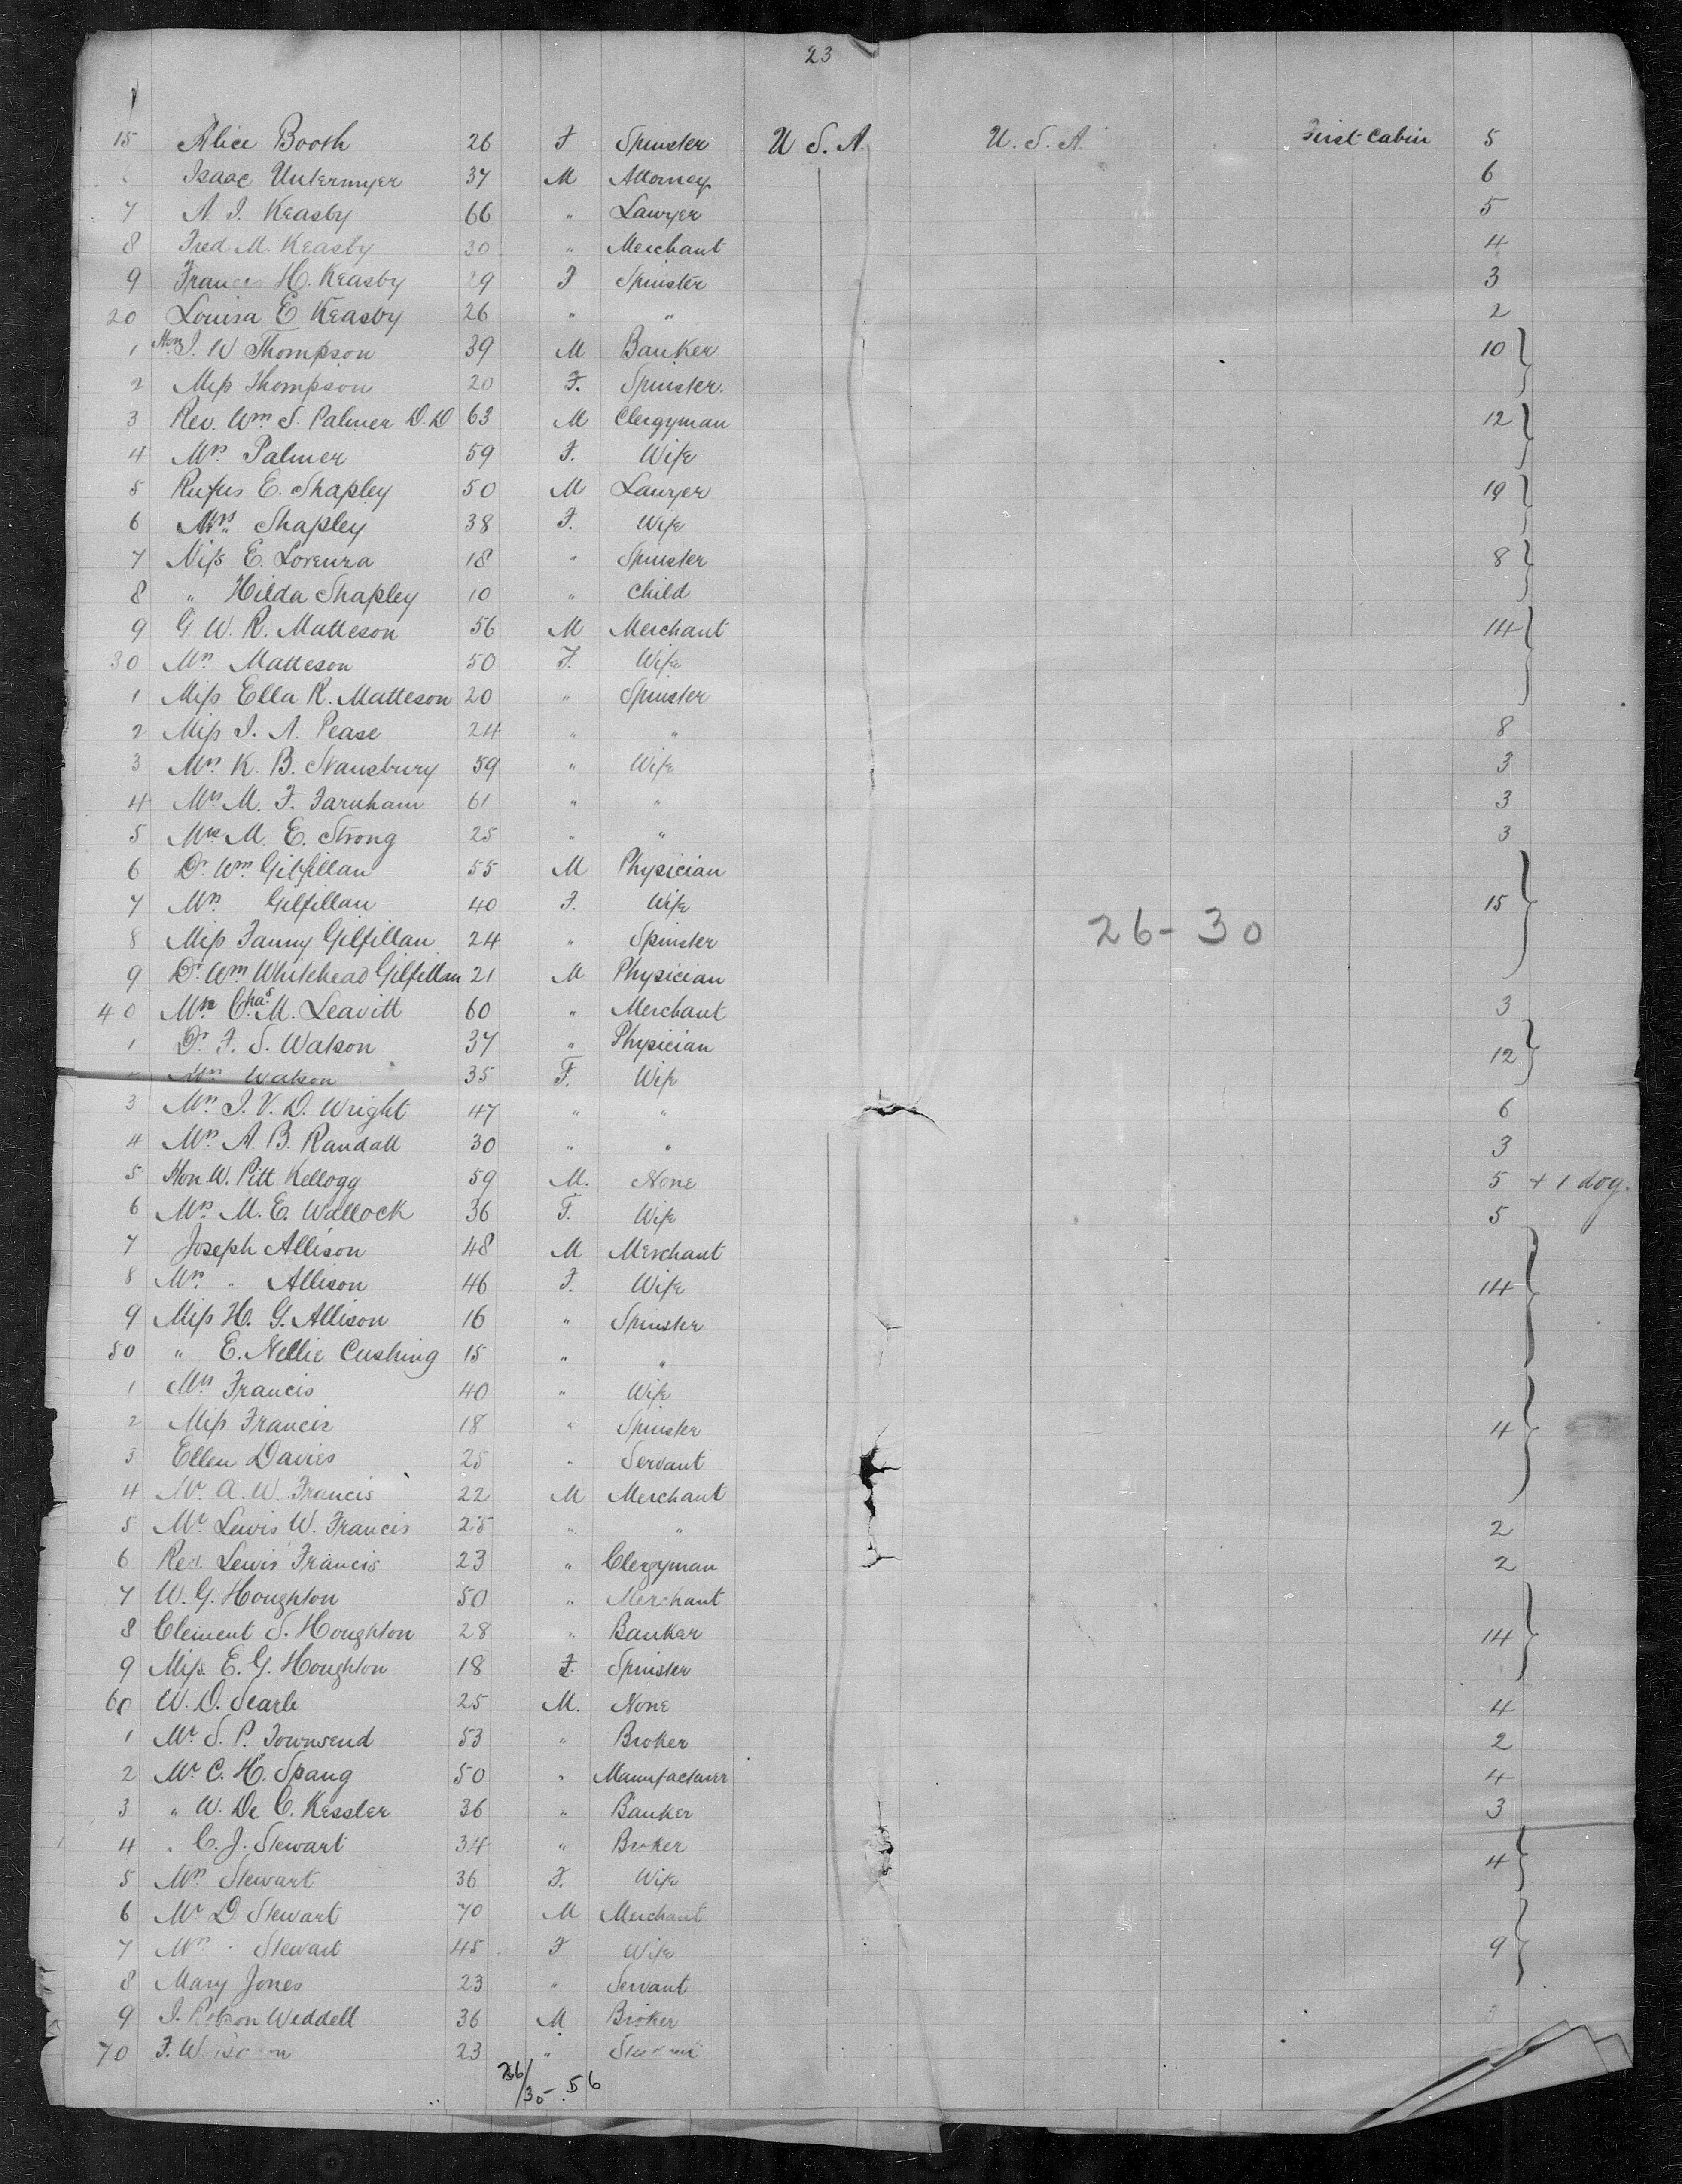 23
15 Alice Booth 26 F Spinster U S. A. U. S. A. First Cabin 5
Isaac Untermyer 37 M Attorney 6
7 A. I. Keasby 66 " Lawyer 5
8 Fred M. Keasby 30 " Merchant 4
9 Frances H. Keasby 29 F Spinster 3
20 Louisa E Keasby 26 " " 2
1 Hon J. W Thompson 39 M Banker 10 }
2 Miss Thompson 20 F. Spinster.
3 Rev. Wm S. Palmer D.D 63 M Clergyman 12 }
4 Mrs. Palmer 59 F. Wife
5 Rufus E. Shapley 50 M Lawyer 19 }
6 Mrs. Shapley 38 F. Wife
7 Miss E. Lorenza 18 " Spinster 8 }
8 " Hilda Shapley 10 " Child
9 G. W. R. Matteson 56 M Merchant 14 }
30 Mrs Matteson 50 F. Wife
1 Miss Ella R. Matteson 20 " Spinster
2 Miss I. A. Pease 24 " " 8
3 Mrs. K. B. Stansbury 59 " Wife 3
4 Mrs M. F. Farnham 61 " " 3
5 Mrs M. E. Strong 25 " " 3
6 Dr. Wm. Gilfillan 55 M Physician
7 Mrs. Gilfillan 40 F. Wife 15 }
8 Miss Fanny Gilfillan 24 " Spinster 26-30
9 Dr. Wm Whitehead Gilfillan 21 M Physician
40 Mr. Chas. M. Leavitt 60 " Merchant 3
1 Dr. F. S. Watson 37 " Physician 12 }
Mrs Watson 35 F. Wife
3 Mrs. J. V. D. Wright 47 " " 6
4 Mrs. A. B. Randall 30 " " 3
5 Hon. W. Pitt Kellogg 59 M. None 5 + 1 dog.
6 Mrs. M. E. Wallock 36 F. Wife 5
7 Joseph Allison 48 M Merchant
8 Mrs. " Allison 46 F. Wife 14 }
9 Miss H. G. Allison 16 " Spinster
50 " E. Nellie Cushing 15 " "
1 Mrs Francis 40 " Wife
2 Miss Francis 18 " Spinster 4 }
3 Ellen Davies 25 " Servant
4 Mr. A. W. Francis 22 M Merchant
5 Mr Lewis W. Francis 25 " " 2
6 Rev. Lewis Francis 23 " Clergyman 2
7 W. G. Houghton 50 " Merchant
8 Clement S. Houghton 28 " Banker 14 }
9 Miss. E. G. Houghton 18 F. Spinster
60 W. D. Searle 25 M. None 4
1 Mr S. P. Townsend 53 " Broker 2
2 Mr C. H. Spang 50 " Manufacturer 4
3 " W. De C. Kessler 36 " Banker 3
4 " C. J. Stewart 34 " Broker 4 }
5 Mrs. Stewart 36 F. Wife
6 Mr D. Stewart 70 M Merchant
7 Mrs " Stewart 45 F Wife 9 }
8 Mary Jones 23 " Servant
9 J. Robson Weddell 36 M Broker
70 F. W. 23 "
26/30 - 56